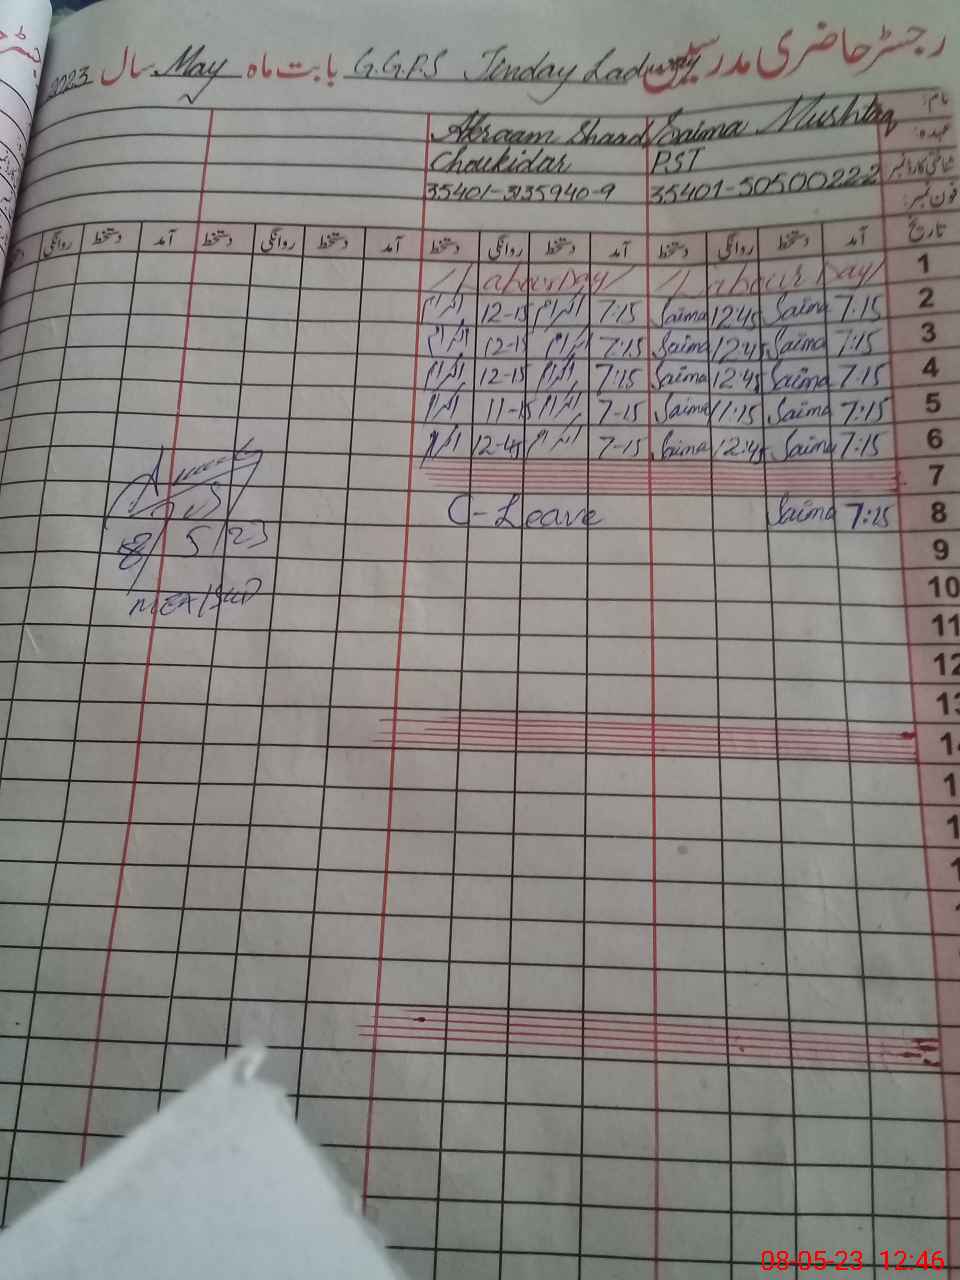 رجسٹر حاضری مدرسین G.G.P.S Jinday Lad بابت ماہ May سال 2023
نام: Saima Mushtaq Akraam Shaad
عہدہ: PST Choukidar
شناختی کارڈ نمبر 35401-5050022-2 35401-3135940-9
فون نمبر:
تاریخ آمد دستخط روانگی دستخط آمد دستخط روانگی دستخط آمد دستخط روانگی دستخط آمد دستخط روانگی
1 Labour Day Labour Day
2 7:15 Saima 12:45 Saima 7:15 اکرام 12-15 اکرام
3 7:15 Saima 12:45 Saima 7:15 اکرام 12-15 اکرام
4 7:15 Saima 12:45 Saima 7:15 اکرام 12-15 اکرام
5 7:15 Saima 11:15 Saima 7-15 اکرام 11-15 اکرام
6 7:15 Saima 12:45 Saima 7-15 اکرام 12-45 اکرام
7
8 7:15 Saima C-Leave
8/5/23
9
10
11
12
13
08-05-23 12:46